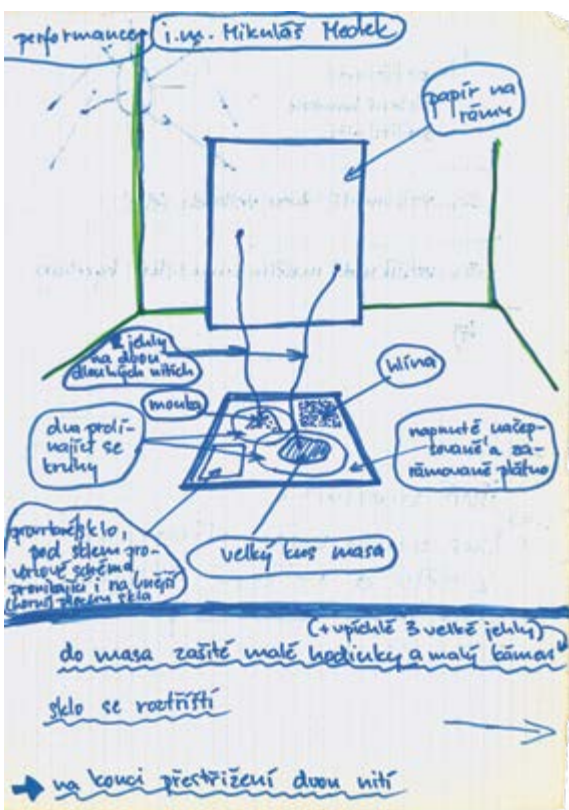 performance
i.m. Mikuláš Medek
papír na
rámu
jehly
na dvou
dlouhých nitích
hlína
mouka
dva prolí-
nající se
kruhy
napnuté našep-
sované a za-
rámované plátno
sklo,
pod sklem pro-
schéma
pronikající i na vnější
skla
velký kus masa
(+ vpíchlé 3 velké jehly)
do masa zašité malé hodinky a malý kámen
sklo se roztříští
na konci přestřižení dvou nití